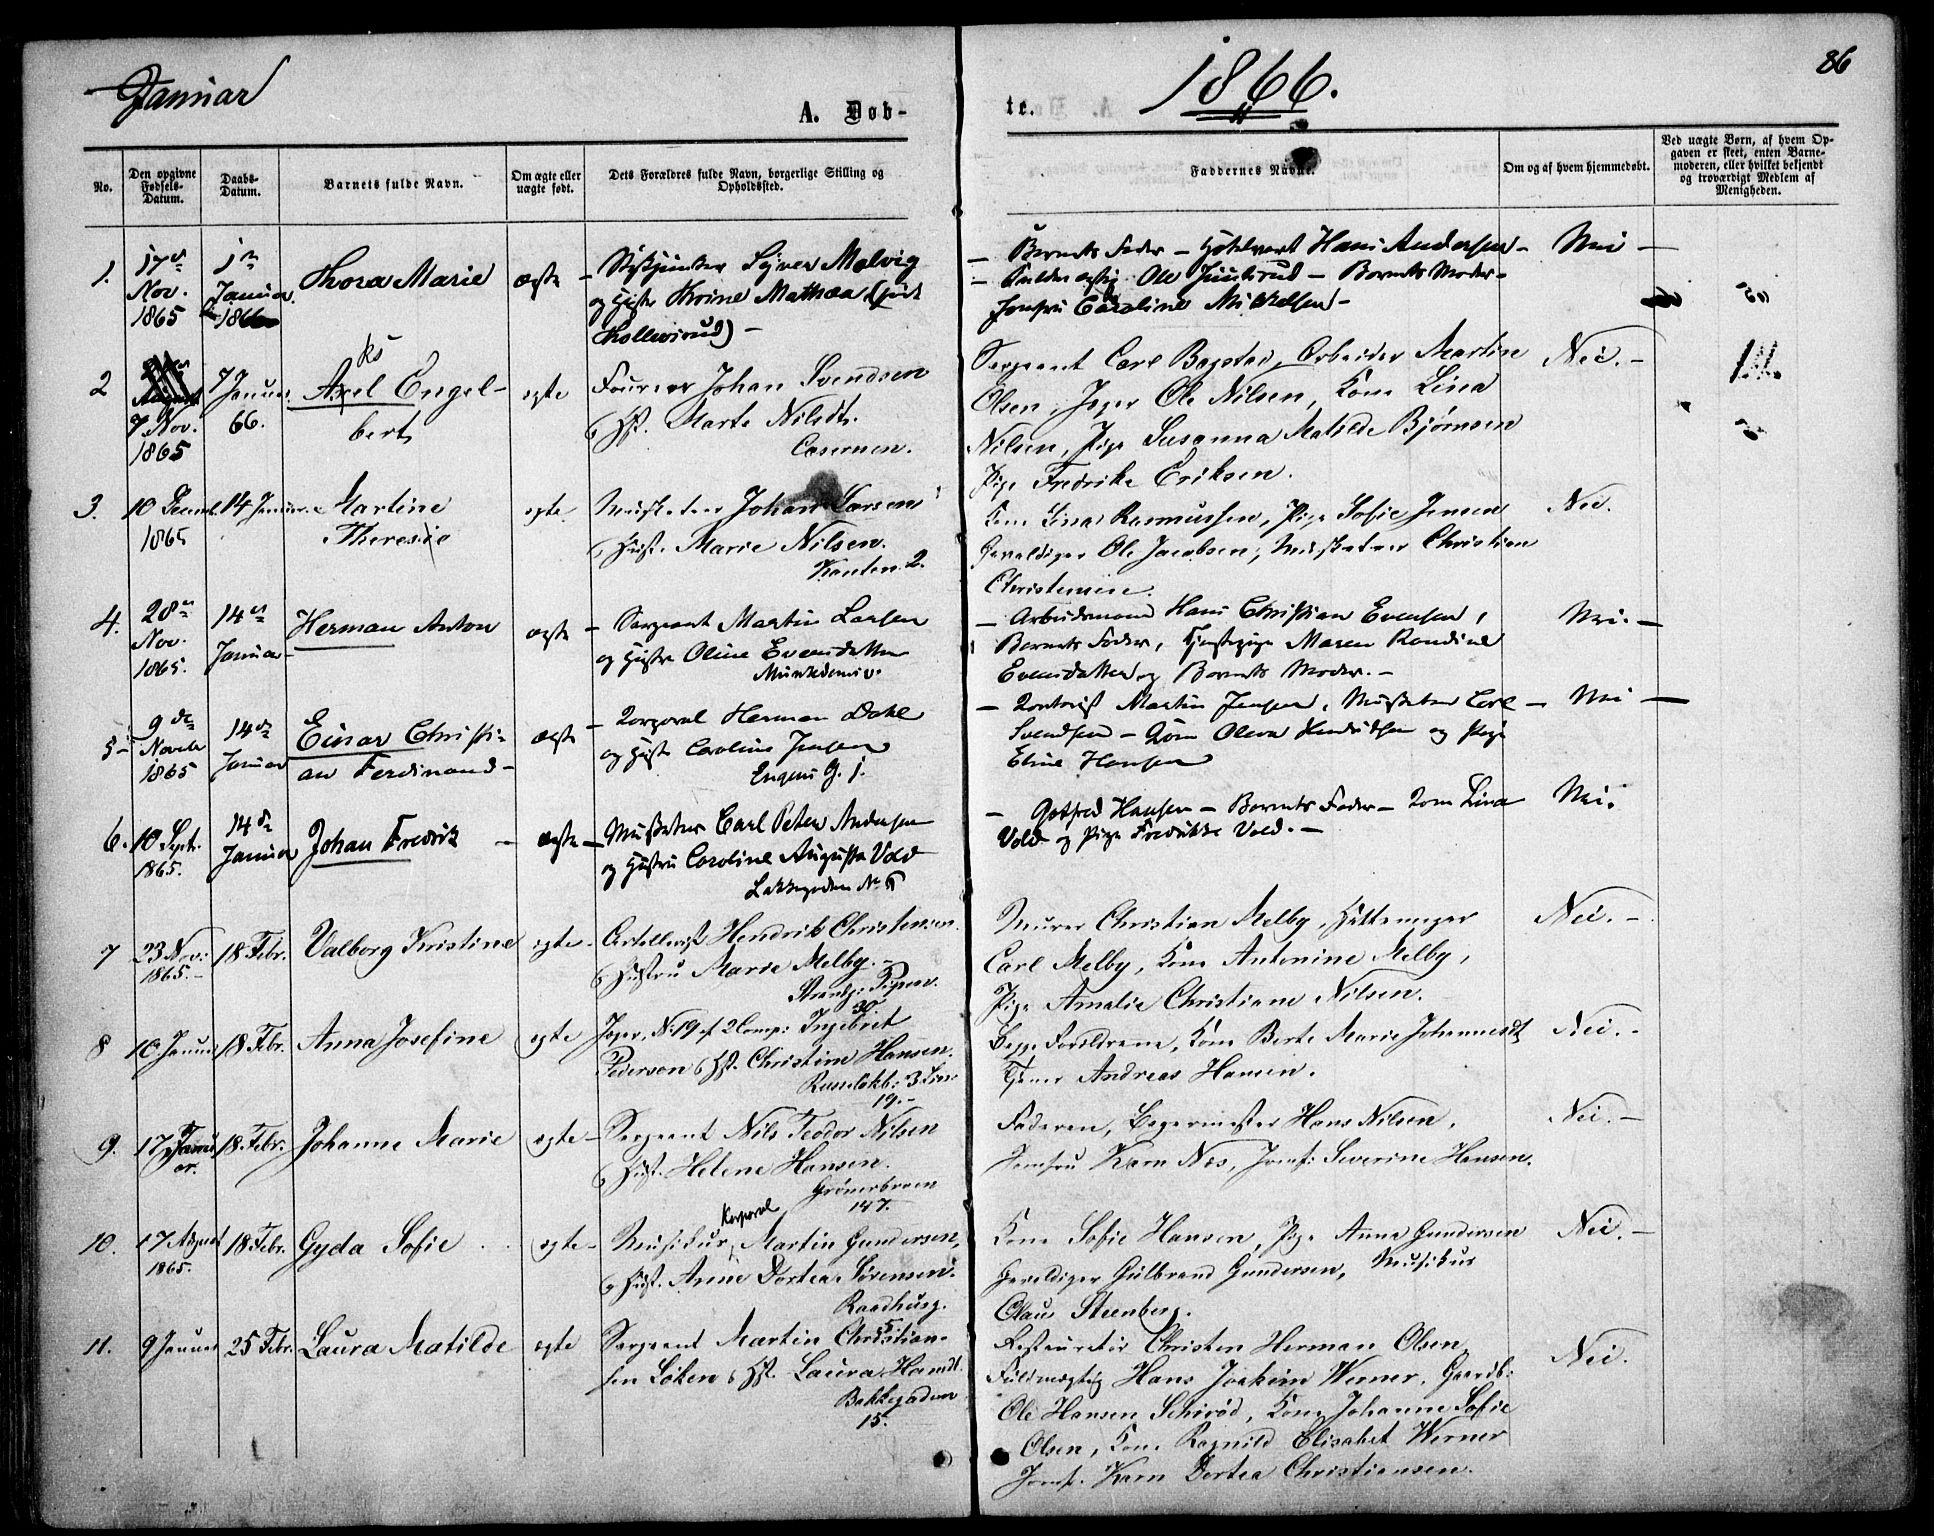 Januar
1866.
86
A. Døb-
te.
No.
Den opgivne
Fødsels-
Datum.
Daabs-
Datum.
Barnets fulde Navn.
Om ægte eller
uægte født.
Dets Forældres fulde Navn, borgerlige Stilling og
Opholdssted.
Faddernes Navne.
Om og af hvem hjemmedøbt.
Ved uægte Børn, af hvem Op-
gaven er skeet, enten Barne-
moderen, eller hvilket bekjendt
og troværdigt Medlem af
Menigheden.
1.
Nov.
1865
Januar
1866
Thora Marie
ægte
Melvig
og Hustr Thrine Mathea
Barnets Fader – Hans Andersen –
Ole – Barnets Moder –
Jomfru Caroline Mikkelsen –
Nei –
2
7 Nov.
1865
7 Januar
66.
Axel Engel-
ks
bert
egte
Fourer Johan Svendsen
& Hst. Marte Nilsdt.
Casernen.
Sergeant Carl Bagstad, Arbeider Martin
Olsen, Jæger Ole Nilsen, Kone Lina
Nilsen, Pige Susanna Matilde Bjørnsen
Pige Fredrike Eriksen.
Nei. –
3.
10 Decemb.
1865
14 Januar.
Martine
Theresie
egte.
Musketeer Johan Larsen
& Hust. Marie Nilsen.
2.
Kone Lina Rasmussen, Pige Sofie Jensen
Gevaldiger Ole Jacobsen, Musketeer Christian
Christensen.
Nei.
4.
28
Nov.
1865.
14
Januar
Herman Anton
ægte
– Sergeant Martin Larsen
og Hustr Oline Evensdatter
– Arbeidsmand Hans Christian Evensen,
Barnets Fader, Tjenestepige Maren Randine
Evensdatter og Barnets Moder. –
Nei. –
5 –
9 de
Novbr
1865
14 de
Januar
Einar Christi-
an Ferdinand –
ægte
– Korporal Herman Dahl
og Hustr Caroline Jensen
Engens G. j.
– Kontorist Martin Jensen, Musketeer Carl –
Svendsen – Kone Oleva Hendriksen og Pige
Eline Hansen
Nei –
6.
10 Septr.
1865.
14 de
Januar
Johan Fredrik –
ægte –
Musketeer Carl Peter Andersen
og Hustru Caroline Augusta Vold
Lakkegaden No 6
– Gotfred Hansen – Barnets Fader – Kone Lina
Vold og Pige Fredrikke Vold. –
Nei.
7
23 Nov:
1865. –
18 Febr.
Valborg Kristine
egte –
Artillerist Hendrik Christensen.
& Hustru Marie Melby. –
30
Murer Christian Melby, Hattemager
Carl Melby, Kone Antonine Melby,
Pige Amalie Christiane Nilsen.
Nei. –
8
10 Januar
18 Febr.
Anna Josefine
egte
Jæger, No 19 af 2 Comp: Ingebret
Pederson & Hst. Christine Hansen.
19. –
Begge Forældrene, Kone Berte Marie Johannesdt
Tjener Andreas Hansen.
Nei. –
9.
17 Janu
ar.
18. Febr.
Johanne Marie
ægte –
Sergeant Nils Teodor Nilsen
& Hust. Helene Hansen.
147.
Faderen, Bagermester Hans Nilsen,
Jomfru Karn Næs, Jomf: Severine Hansen.
Nei. –
10.
17 August
1865.
18 Febr.
Gyda Sofie
egte –
Korporal
Musikus, Martin Gundersen,
& Hust. Anne Dortea Sørensen.
Raadhusg.
Kone Sofie Hansen, Pige Anna Gundersen
Gevaldiger Gulbrand Gundersen, Musikus
Olaus Steenberg.
Nei. –
11.
9 Januar
25 Febr.
Laura Matilde
ægte
Sergeant Martin Christian-
sen Løken & Hst. Laura Hansdt.
Bakkegaden
15.
Restauratør Christen Herman Olsen,
Fuldmægtig Hans Joakim Werner, Gaardb:
Ole Hansen Schirød, Kone Johanne Sofie
Olsen, Kone Ragnild Elisabet Werner
Jomf. Karn Dortea Christiansen.
Nei.